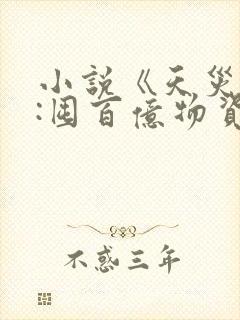 小説《天災
:囤百億物資
不惑三年